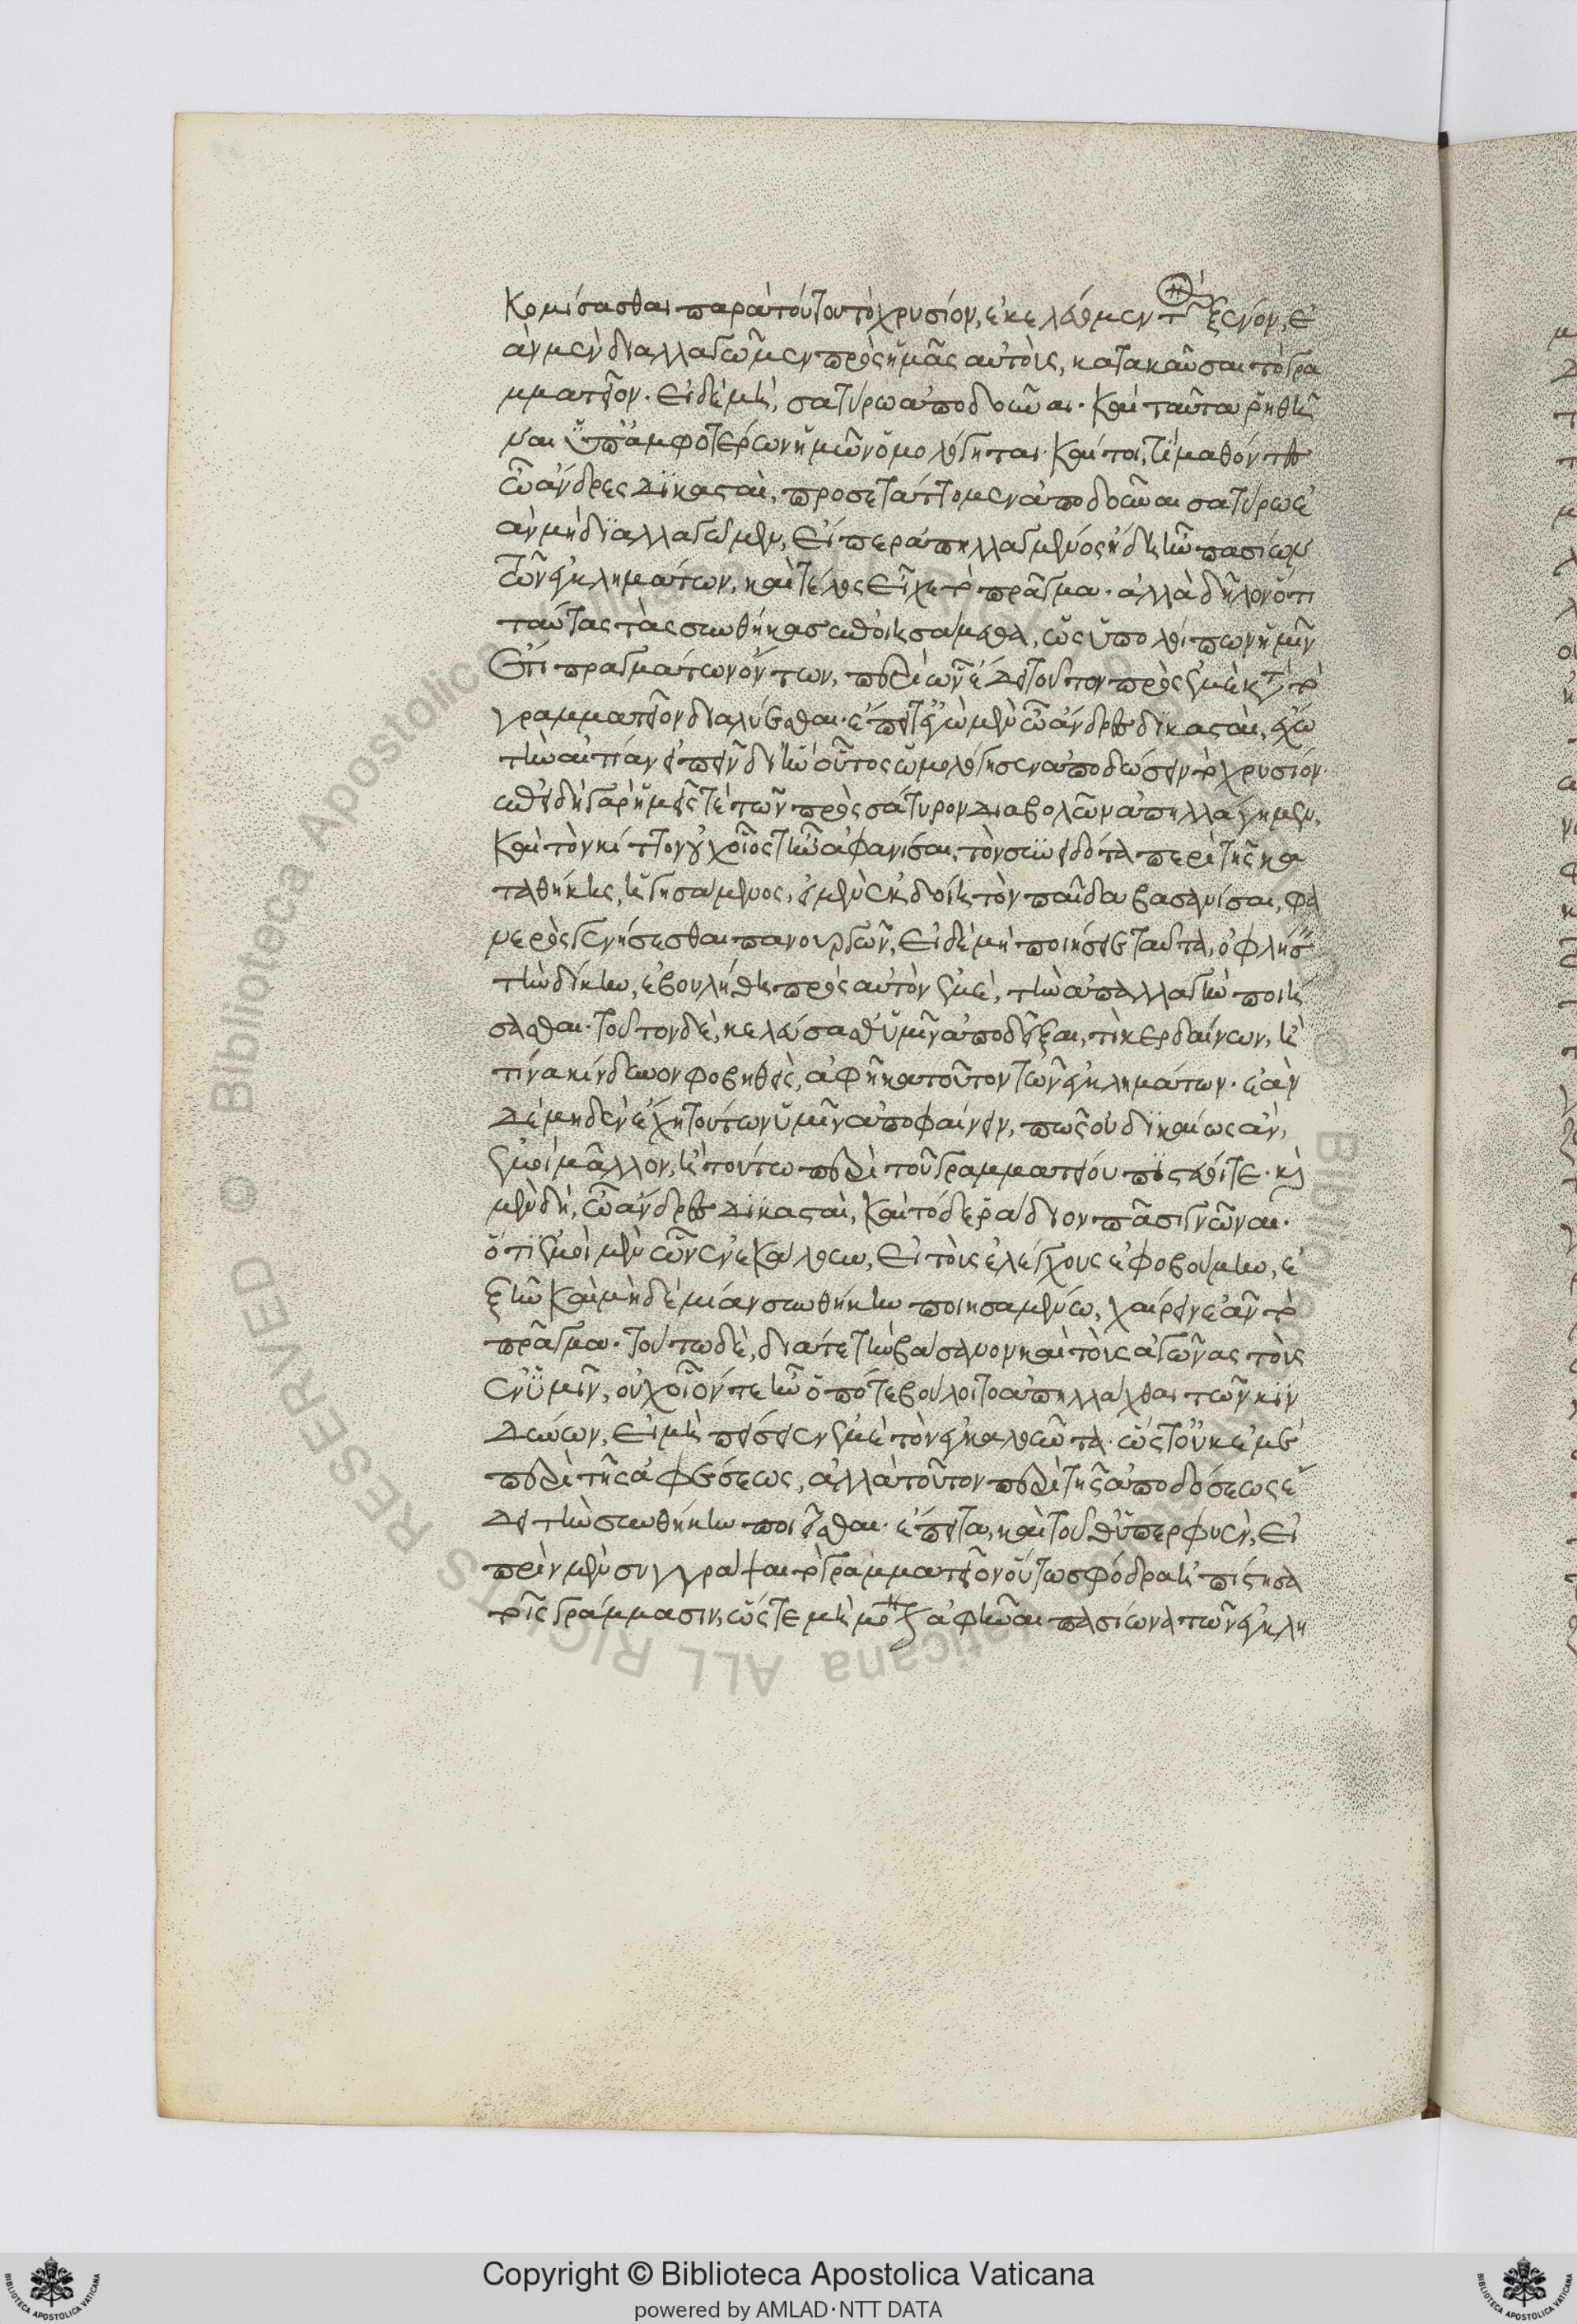 κομίσασθαι παρὰ τούτου τὸ χρυσίον, ἐκελεύομεν τὸν ξένον, ἐ
ὰν μὲν διαλλαγῶμεν πρὸς ἡμᾶς αὐτοὺς, κατακαῦσαι τὸ γρα
μματεῖον. εἰ δὲ μὴ, σατύρω ἀποδοῦναι. καὶ ταῦτα ῥηθῆ
ναι ὑπ' ἀμφοτέρων ἡμῶν ὁμολογεῖται. καίτοι, τί μαθόντες
ὦ ἄνδρες δικασταὶ, προσετάττομεν ἀποδοῦναι σατύρω ἐ
ὰν μὴ διαλλαγῶμεν, εἴπερ ἀπηλλαγμένος ἤδη ἦν πασίων
τῶν ἐγκλημάτων, καὶ τέλος εἶχε τὸ πρᾶγμα. ἀλλὰ δῆλον ὅτι
ταύτας τὰς συνθήκας ἐποιησάμεθα, ὡς ὑπολοίπων ἡμῖν
ἔτι πραγμάτων ὄντων, περὶ ὧν ἔδει τοῦτον πρὸς ἐμὲ κατὰ τὸ
γραμματεῖον διαλύσασθαι. ἔπειτ' ἐγὼ μὲν ὦ ἄνδρες δικασταὶ, ἔχω
τὴν αἰτίαν εἰπεῖν δι' ἣν οὗτος ὡμολόγησεν ἀποδώσειν τὸ χρυσίον.
ἐπειδὴ γὰρ ἡμεῖς τε τῶν πρὸς σάτυρον διαβολῶν ἀπηλλάγημεν,
καὶ τὸν κίττον οὐχ οἷος τ' ἦν ἀφανίσαι, τὸν συνειδότα περὶ τῆς κα
ταθήκης, ἡγησάμενος, εἰ μὲν ἐκδοίη τὸν παῖδα βασανίσαι, φα
νερὸς γενήσεσθαι πανουργῶν, εἰ δὲ μὴ ποιήσειε ταῦτα, ὀφλήσειν
τὴν δίκην, ἐβουλήθη πρὸς αὐτὸν ἐμὲ, τὴν ἀπαλλαγὴν ποιή
σασθαι. τοῦτον δὲ, κελεύσαθ' ὑμῖν ἀποδεῖξαι, τί κερδαίνων, ἢ
τίνα κίνδυνον φοβηθεὶς, ἀφῆκα τοῦτον τῶν ἐγκλημάτων. ἐὰν
δὲ μηδὲν ἔχη τούτων ὑμῖν ἀποφαίνειν, πῶς οὐ δικαίως ἂν,
ἐμοὶ μᾶλλον, ἢ τούτω περὶ τοῦ γραμματείου πιστεύοιτε. καὶ
μὲν δὴ, ὦ ἄνδρες δικασταὶ, καὶ τόδε ῥάδιον πᾶσι γνῶναι.
ὅτι ἐμοὶ μὲν ὧν ἐνεκάλουν, εἰ τοὺς ἐλέγχους ἐφοβούμην, ἐ
ξῆν καὶ μὴ δὲ μίαν συνθήκην ποιησαμένω, χαίρειν ἐᾶν τὸ
πρᾶγμα. τούτω δὲ, διά τε τὴν βάσανον καὶ τοὺς ἀγῶνας τοὺς
ἐν ὑμῖν, οὐχ οἷόν τε ἦν ὁπότε βούλοιτο ἀπηλλάχθαι τῶν κιν
δύνων, εἰ μὴ πείσειεν ἐμὲ τὸν ἐγκαλοῦντα. ὥστ' οὐκ ἐμὲ
περὶ τῆς ἀφέσεως, ἀλλὰ τοῦτον περὶ τῆς ἀποδόσεως ἔ
δει τὴν συνθήκην ποιεῖσθαι. ἔπειτα, καὶ τοῦθ' ὑπερφυὲς, εἰ
πρὶν μὲν συγγράψαι τὸ γραμματεῖον οὕτω σφόδρα ἠπίστησα
τοῖς γράμμασιν, ὥστε μὴ μόνον ἀφεῖναι πασίωνα τῶν ἐγκλη